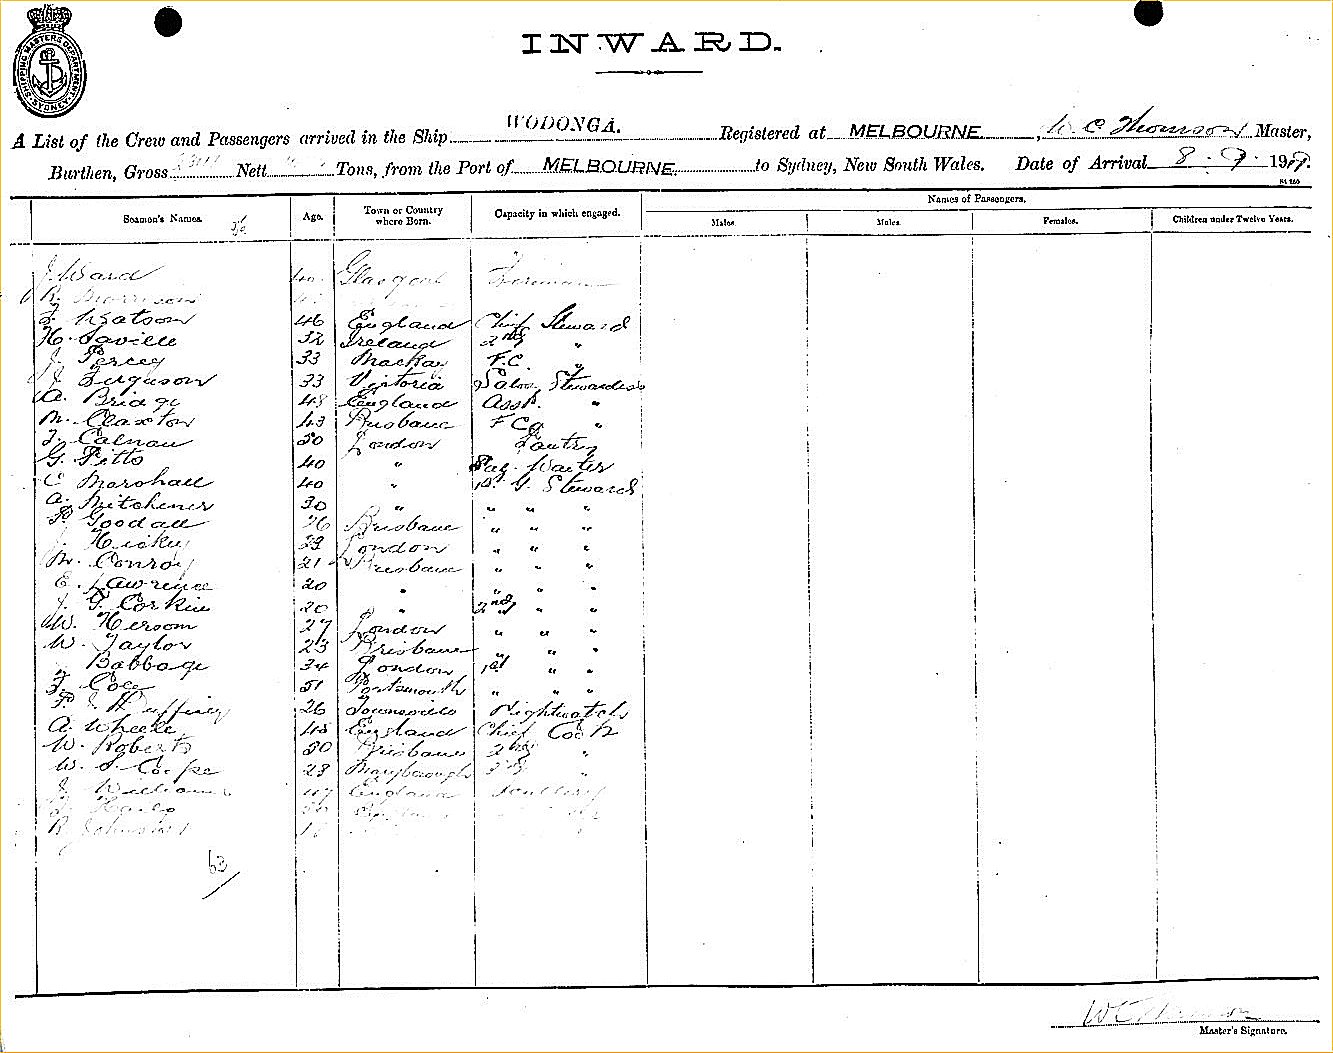 SHIPPING MASTERS DEPARTMENT. SYDNEY
INWARD.
A List of the Crew and Passengers arrived in the Ship WODONGA. Registered at MELBOURNE, W C Thomson Master,
Burthen, Gross Nett Tons, from the Port of MELBOURNE. to Sydney, New South Wales. Date of Arrival 8. 9. 1919.
Seamen's Names. Age. Town or Country where Born. Capacity in which engaged. Names of Passengers.
Males. Males. Females. Children under Twelve Years.
J. Ward Glasgow Fireman
R. Morrison
F. Watson 46 England Chief Steward
H. Saville 32 Ireland 2nd "
J. Percey 33 Mackay F.C. "
J. Ferguson 33 Victoria Saloon Stewardess
A. Bridge 48 England Asst. "
M. Claxton 43 Brisbane F C "
T. Calnan 50 London Pantry
G. Pitts 40 " Waiter
C Marshall 40 " 1st G. Steward
A. Mitchener 30 " " " "
P. Goodall 26 Brisbane " " "
J. Hickey 23 London " " "
M. Conroy 21 Brisbane " " "
E. Lawrence 20 " " " "
J. G. Corkin 20 " 2nd " "
W. Hersom 27 London " " "
W. Taylor 23 Brisbane " " "
Babbage 34 London 1st " "
F. Cole 51 Portsmouth " " "
P. J. Duffiney 26 Townsville Nightwatch
A. Wheele 45 England Chief Cook
W. Roberts 30 Brisbane 2nd "
W. S. Coope 28 Maryborough 3rd "
J. Williams 47 England Scullery
R Johnson 18
63
Master's Signature.